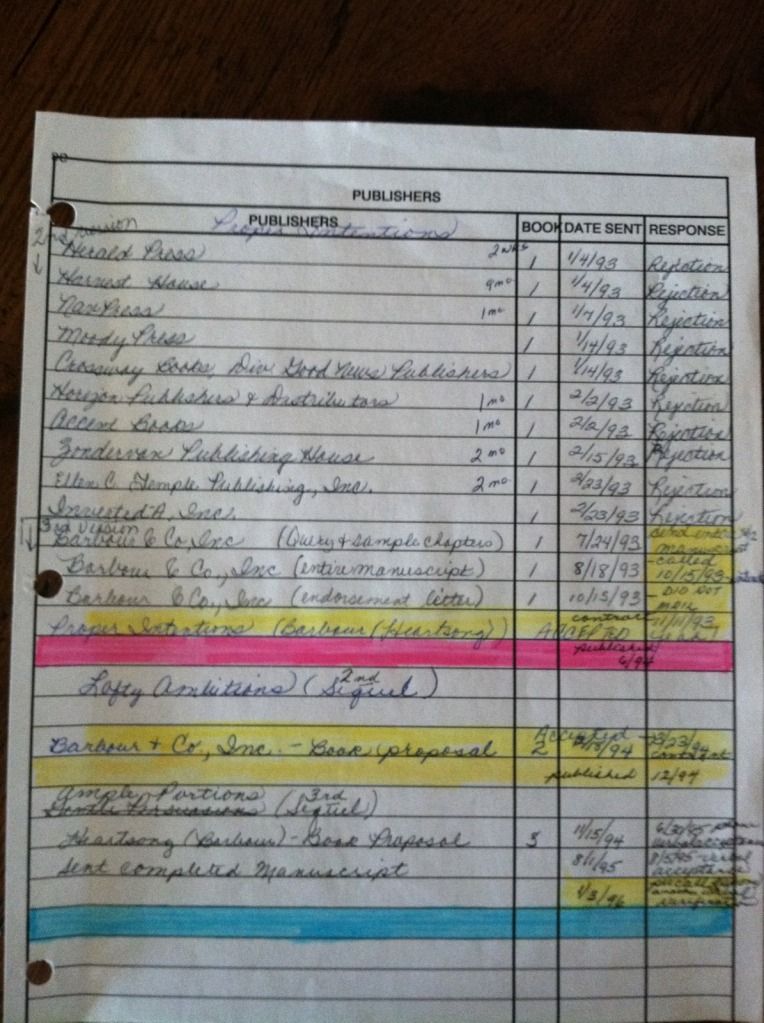 PUBLISHERS
PUBLISHERS Proper Intentions BOOK DATE SENT RESPONSE
2nd version
Herald Press 2 wks 1 1/4/93 Rejection
Harvest House 9 mo 1 1/4/93 Rejection
NavPress 1 mo 1 1/7/93 Rejection
Moody Press 1 1/14/93 Rejection
Crossway Books, Div. Good News Publishers 1 1/14/93 Rejection
Horizon Publishers & Distributors 1 mo 1 2/2/93 Rejection
Accent Books 1 mo 1 2/2/93 Rejection
Zondervan Publishing House 2 mo 1 2/15/93 Rejection
Ellen C. Temple Publishing, Inc. 2 mo 1 2/23/93 Rejection
Inverted A, Inc. 1 2/23/93 Rejection
3rd version
Barbour & Co, Inc (Query & sample chapters) 1 7/24/93 send entire manuscript
Barbour & Co., Inc (entire manuscript) 1 8/18/93 - called 10/15/93
Barbour & Co., Inc (endorsement letter) 1 10/15/93 - DID NOT mail
Proper Intentions (Barbour/Heartsong) ACCEPTED contract 11/11/93
published 6/94
Lofty Ambitions (2nd Sequel)
Accepted -
Barbour + Co., Inc. - Book proposal 2 /94 3/23/94 contract
published 12/94
Ample Portions
Gentle Persuasions (3rd Sequel)
Heartsong (Barbour) - Book Proposal 3 11/15/94
Sent completed Manuscript 8/1/95 verbal acceptance
1/3/96